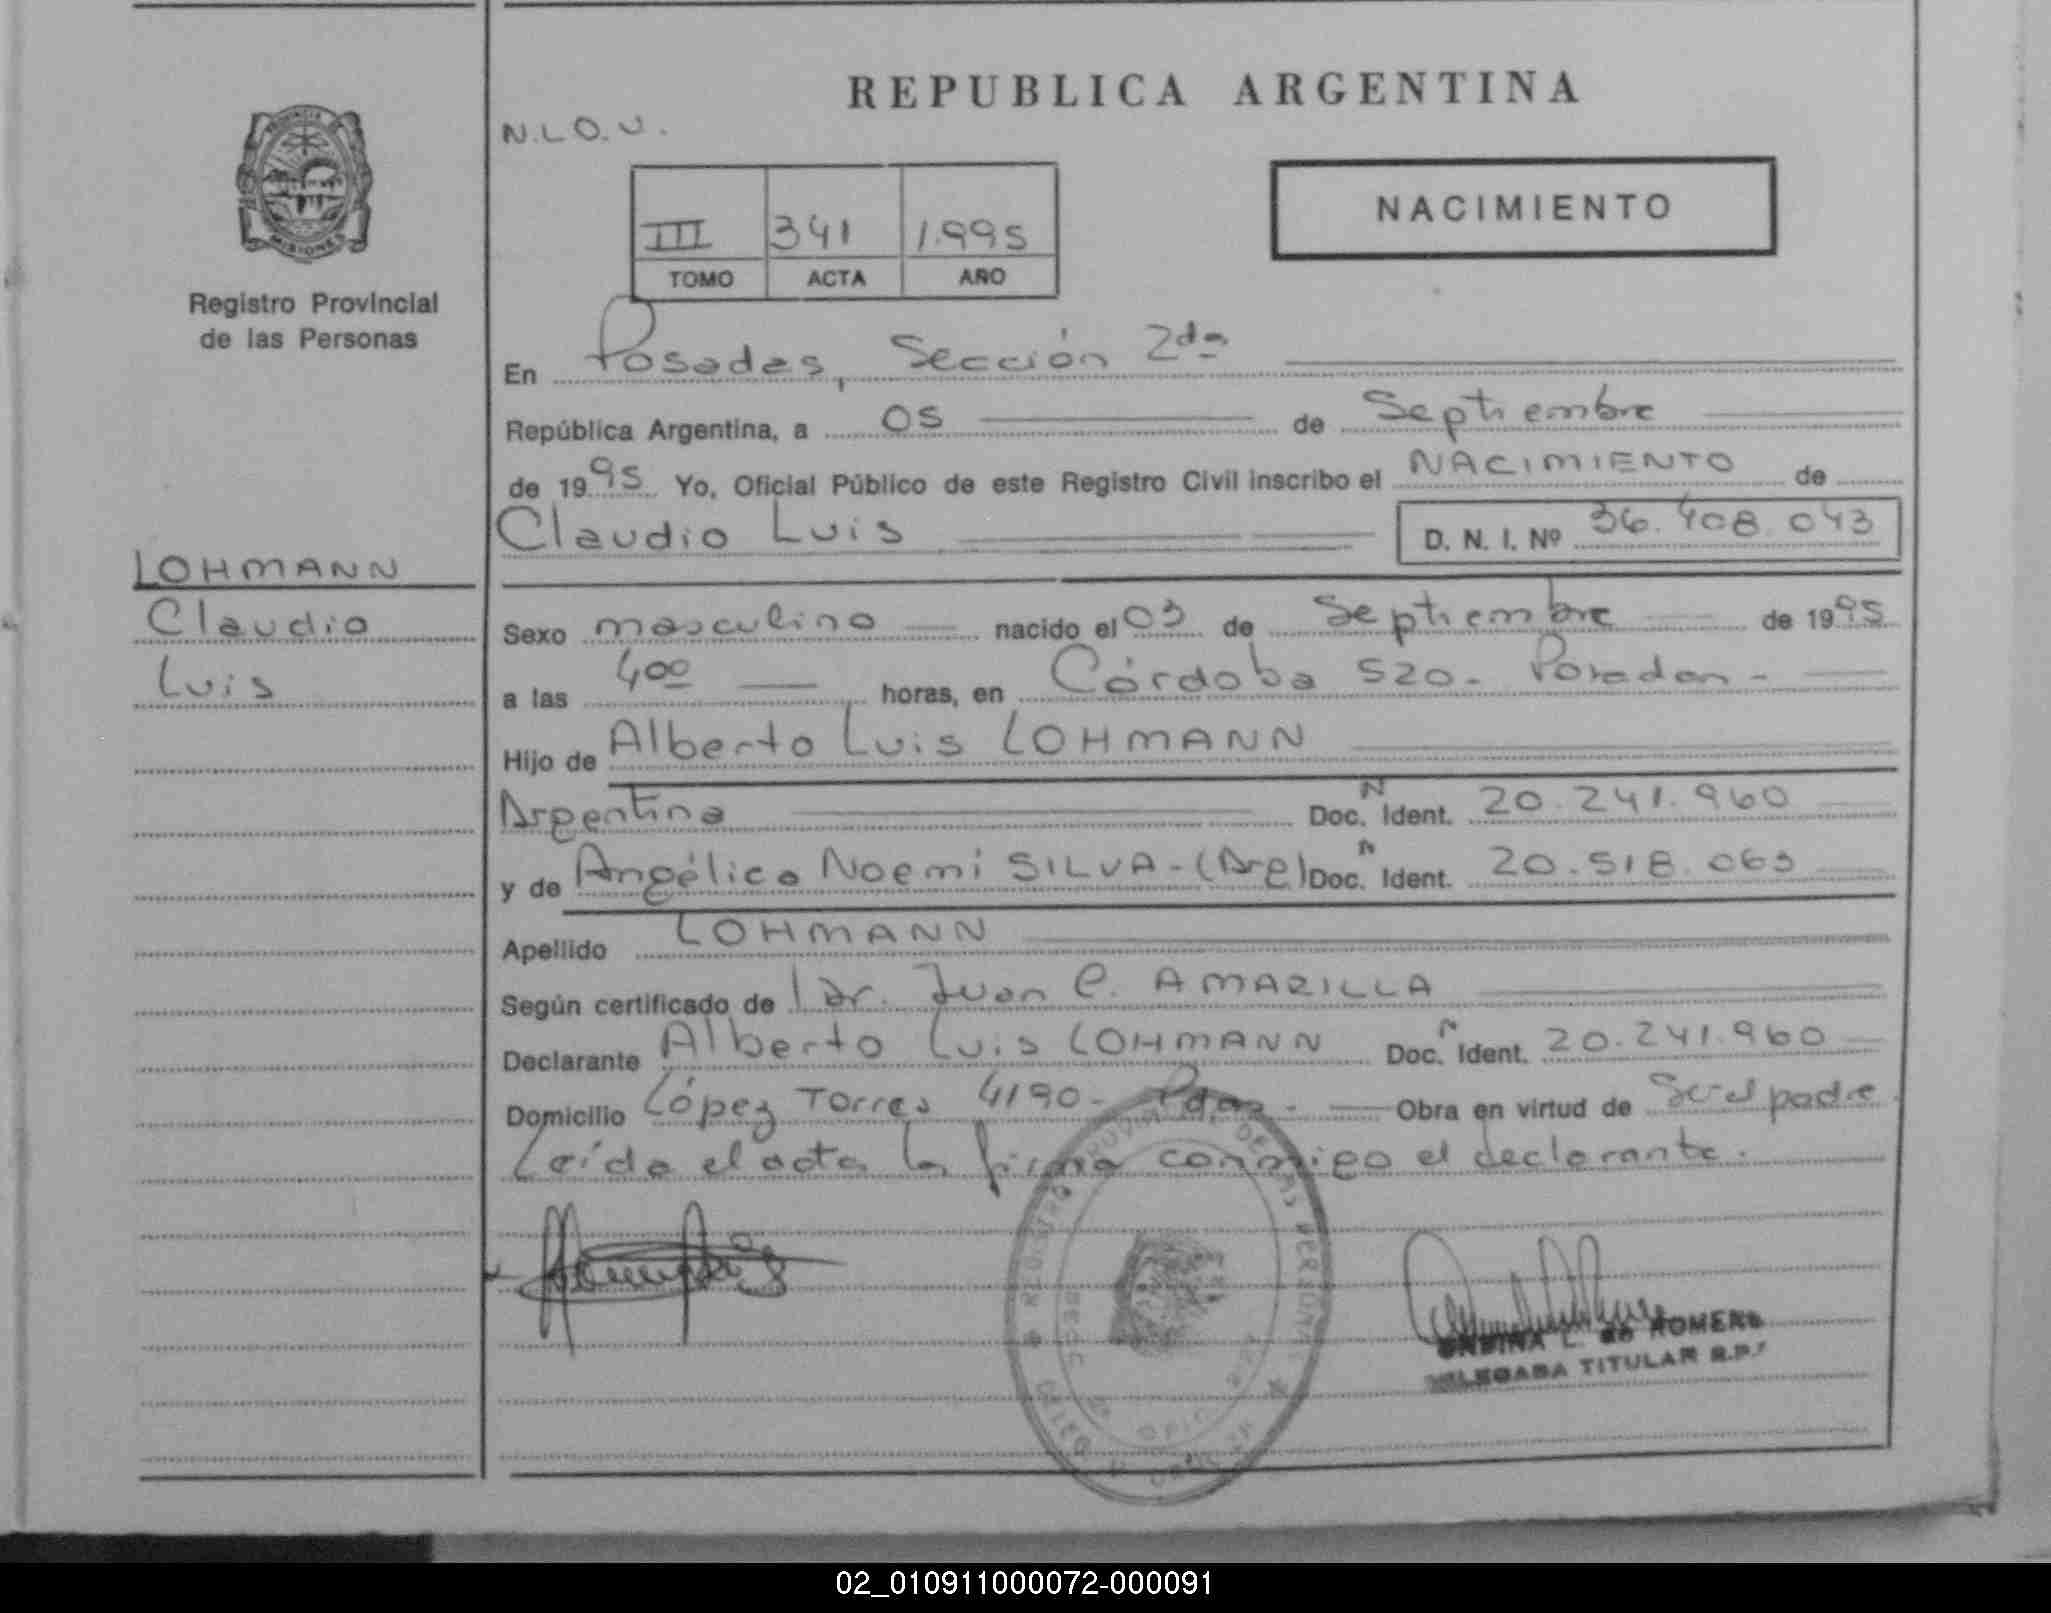 REPUBLICA ARGENTINA
N.L.O.U.
NACIMIENTO
III 341 1.995
TOMO ACTA AÑO
PROVINCIA DE
MISIONES
Registro Provincial
de las Personas
En Posadas, Sección 2da
República Argentina, a 05 de Septiembre
de 1995 Yo, Oficial Público de este Registro Civil inscribo el NACIMIENTO de
Claudio Luis D. N. I. Nº 36.408.043
LOHMANN
Claudio
Luis
Sexo masculino nacido el 03 de Septiembre de 1995
a las 4oo horas, en Córdoba 520. Posadas -
Hijo de Alberto Luis LOHMANN
Argentina Doc. N Ident. 20.241.960
y de Angélica Noemi SILVA - (Arg) Doc. N Ident. 20.518.063
Apellido LOHMANN
Según certificado de Dr. Juan C. AMARILLA
Declarante Alberto Luis LOHMANN Doc. N Ident. 20.241.960
Domicilio López Torres 4190 - Pdas. - Obra en virtud de Ser el padre.
Leída el acta la firma conmigo el declarante.
REGISTRO PROVINCIAL DE LAS PERSONAS
L. de ROMERO
DELEGADA TITULAR R.P.
02_010911000072-000091